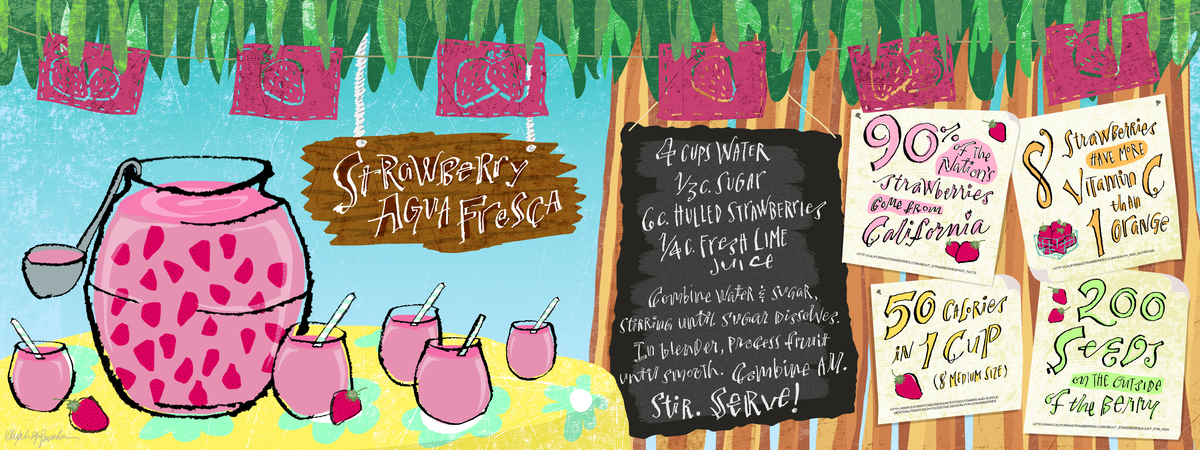 Strawberry
Agua Fresca
4 cups water
1/3 c. sugar
6 c. hulled strawberries
1/4 c. fresh lime
juice
Combine water & sugar,
stirring until sugar dissolves.
In blender, process fruit
until smooth. Combine all.
Stir. Serve!
90%
of the
Nation's
strawberries
come from
California
8 strawberries
have more
Vitamin C
than
1 orange
50 calories
in 1 cup
(8 medium size)
200
Seeds
on the outside
of the berry